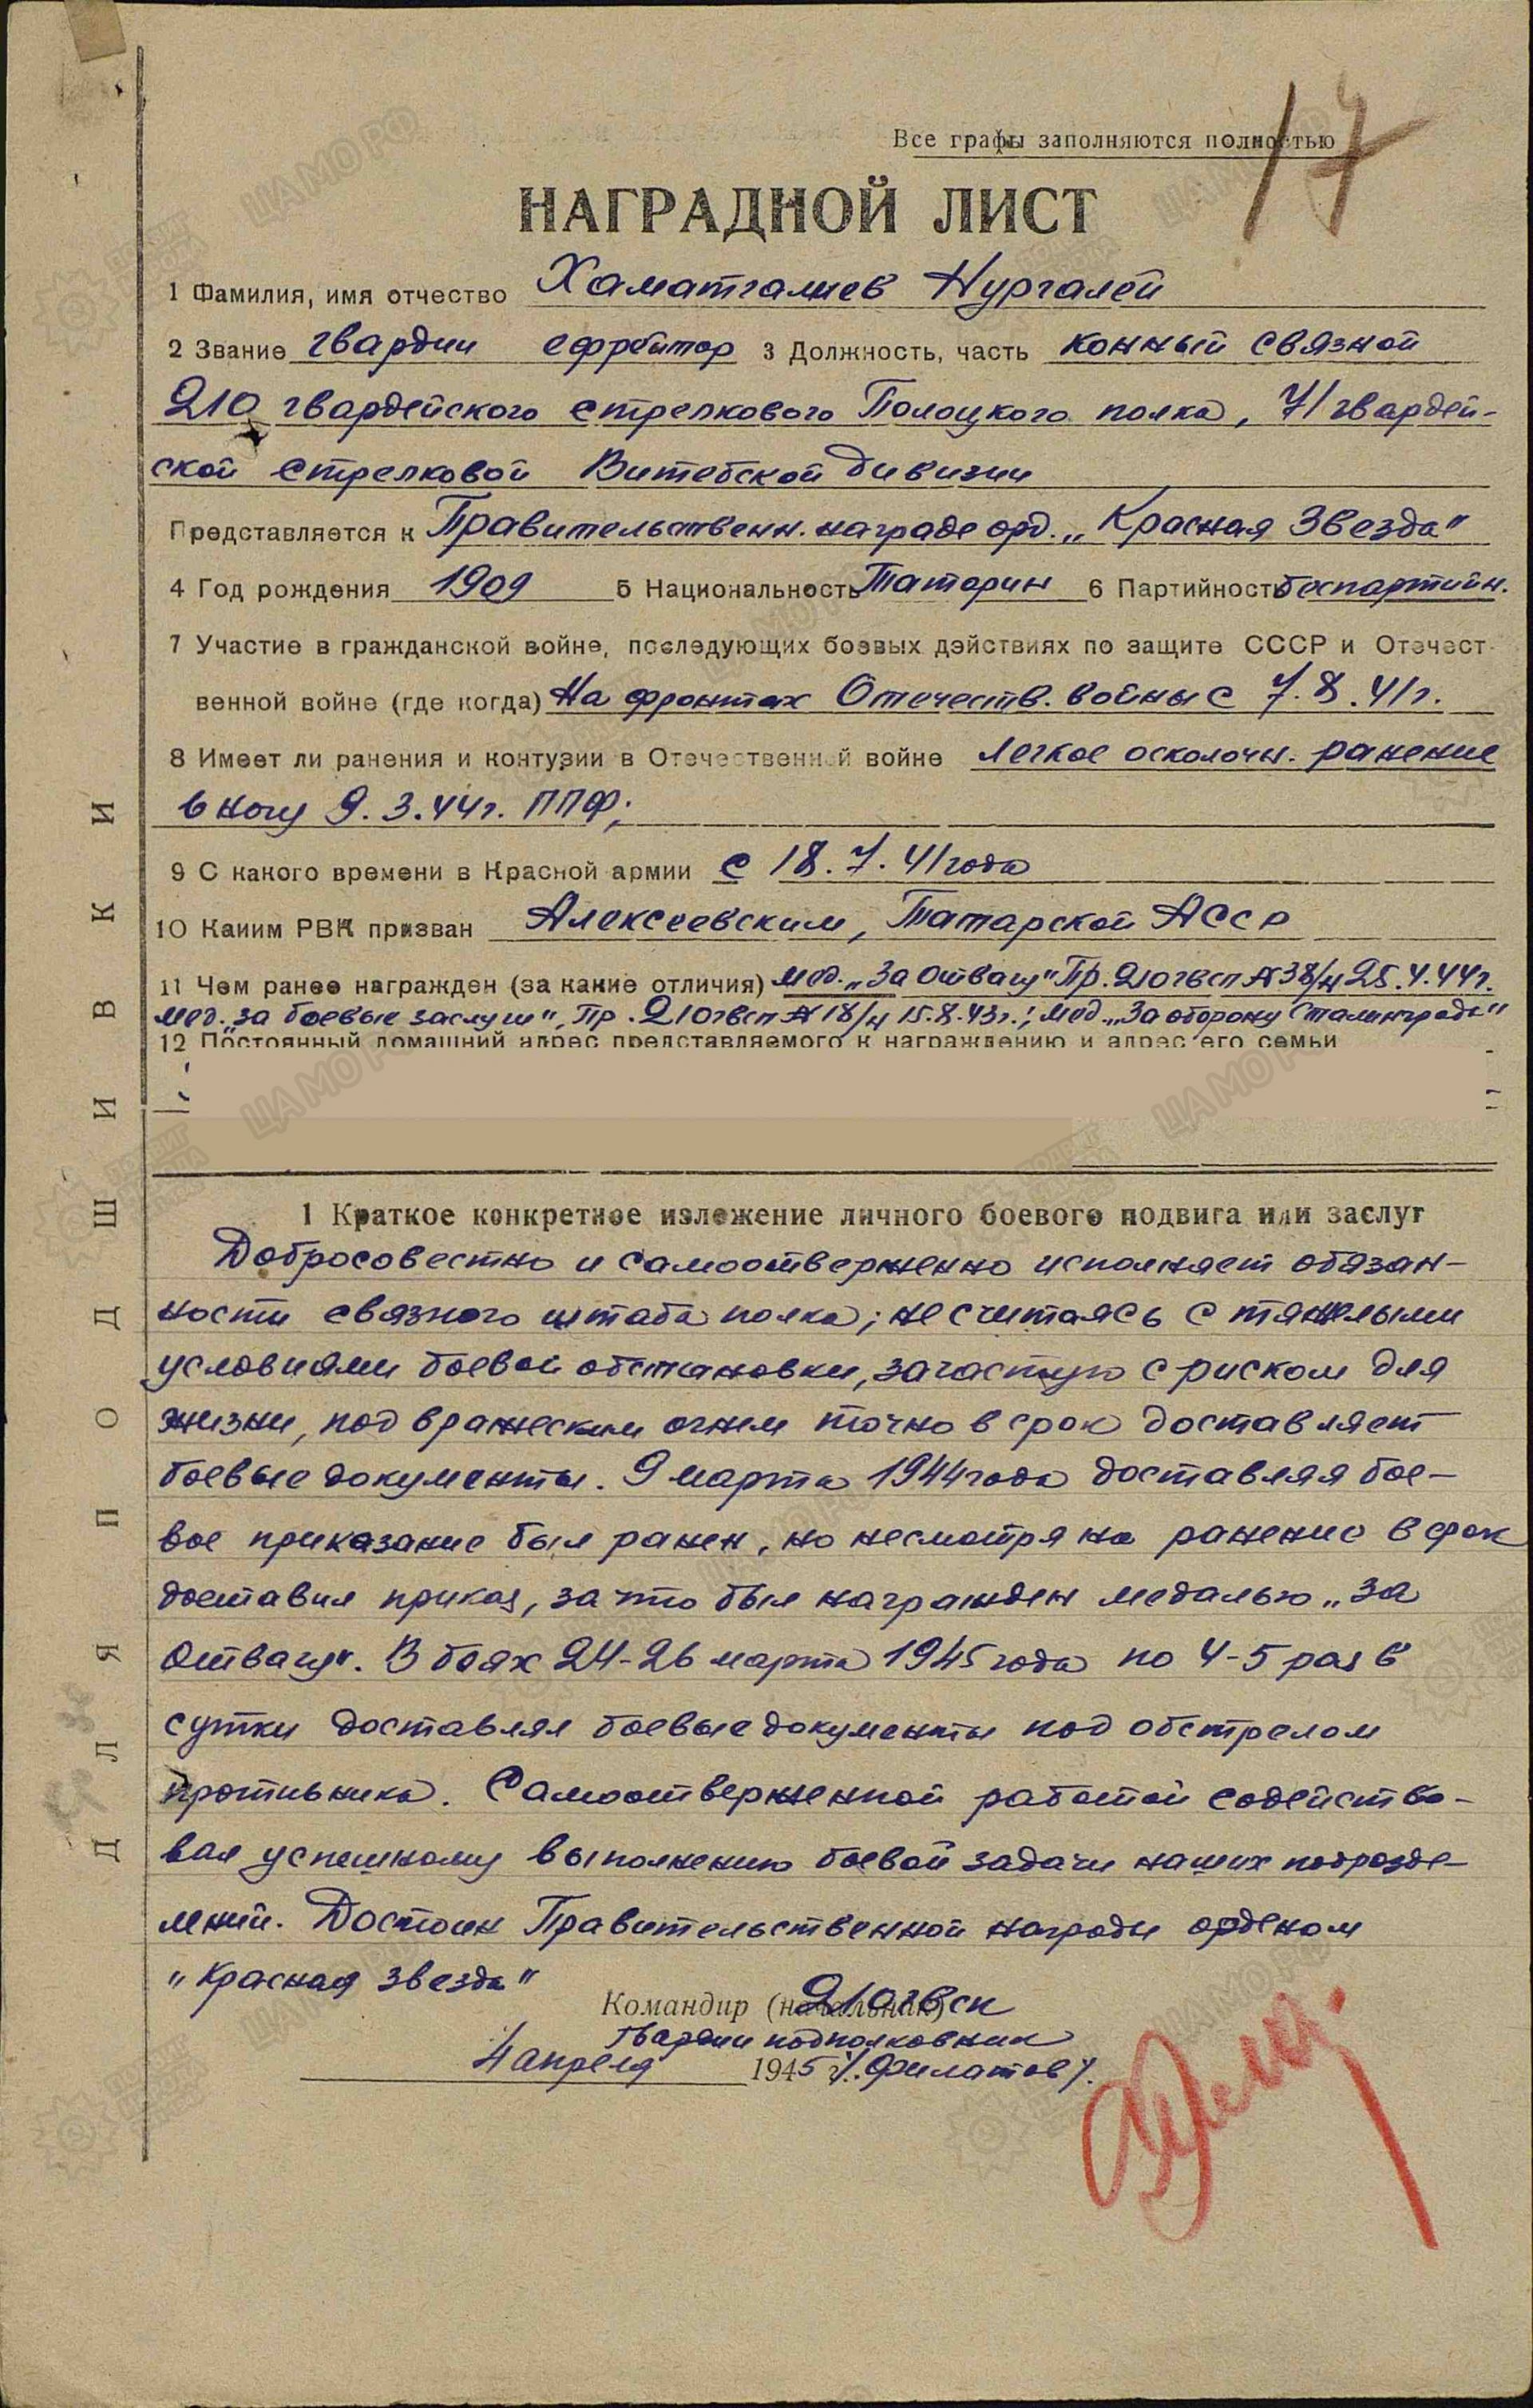 17
Все графы заполняются полностью
НАГРАДНОЙ ЛИСТ
1 Фамилия, имя отчество Хаматгалиев Нургалей
2 Звание гвардии ефрейтор 3 Должность, часть конный связной
210 гвардейского стрелкового Полоцкого полка, 71 гвардей-
ской стрелковой Витебской дивизии
Представляется к Правительственн. награде орд. „Красная Звезда"
4 Год рождения 1909 5 Национальность Татарин 6 Партийность беспартийн.
7 Участие в гражданской войне, последующих боевых действиях по защите СССР и Отечест-
венной войне (где когда) На фронтах Отечеств. войны с 7.8.41г.
8 Имеет ли ранения и контузии в Отечественной войне легкое осколочн. ранение
в ногу 9.3.44г. ППФ;
9 С какого времени в Красной армии с 18.7.41 года
10 Каким РВК призван Алексеевским, Татарской АССР
11 Чем ранее награжден (за какие отличия) мед. „За отвагу" Пр. 210 гвсп № 38/н 25.4.44г.
мед. „за боевые заслуги", Пр. 210 гвсп № 18/н 15.8.43г.; мед. „За оборону Сталинграда"
12 Постоянный домашний адрес представляемого к награждению и адрес его семьи
1 Краткое конкретное изложение личного боевого подвига или заслуг
Добросовестно и самоотверженно исполняет обязан-
ности связного штаба полка; не считаясь с тяжелыми
условиями боевой обстановки, зачастую с риском для
жизни, под вражеским огнем точно в срок доставляет
боевые документы. 9 марта 1944 года доставляя бое-
вое приказание был ранен, но несмотря на ранение в срок
доставил приказ, за что был награжден медалью „За
отвагу". В боях 24-26 марта 1945 года по 4-5 раз в
сутки доставлял боевые документы под обстрелом
противника. Самоотверженной работой содейство-
вал успешному выполнению боевой задачи наших подразде-
лений. Достоин Правительственной награды орденом
„Красная звезда"
Командир (начальник) 210 гвсп
гвардии подполковник
4 апреля 1945 г. /Филатов/.
ДЛЯ ПОДШИВКИ
ЦАМО РФ